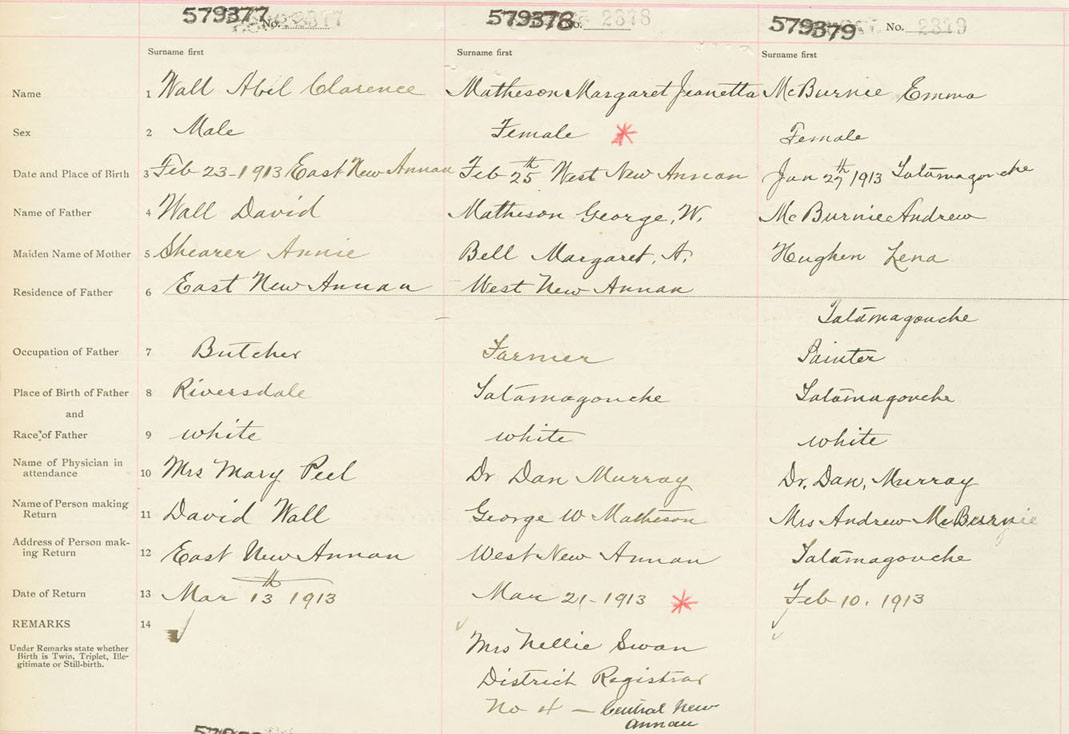 579377 No. 2377 579378 No. 2378 579379 No. 2379
Surname first Surname first Surname first
Name 1 Wall Abil Clarence Matheson Margaret Jeanetta McBurnie Emma
Sex 2 Male Female * Female
Date and Place of Birth 3 Feb 23-1913 East New Annan Feb 25th West New Annan Jan 27th 1913 Tatamagouche
Name of Father 4 Wall David Matheson George, W. McBurnie Andrew
Maiden Name of Mother 5 Shearer Annie Bell Margaret, A. Hughen Lena
Residence of Father 6 East New Annan West New Annan
Tatamagouche
Occupation of Father 7 Butcher Farmer Painter
Place of Birth of Father 8 Riversdale Tatamagouche Tatamagouche
and
Race of Father 9 white white white
Name of Physician in
attendance 10 Mrs Mary Peel Dr Dan Murray Dr. Dan, Murray
Name of Person making
Return 11 David Wall George W Matheson Mrs Andrew McBurnie
Address of Person mak-
ing Return 12 East New Annan West New Annan Tatamagouche
Date of Return 13 Mar 13th 1913 Mar 21-1913 * Feb 10. 1913
REMARKS 14
Under Remarks state whether
Birth is Twin, Triplet, Ille-
gitimate or Still-birth.
Mrs Nellie Swan
District Registrar
No 4 — Central New
Annan